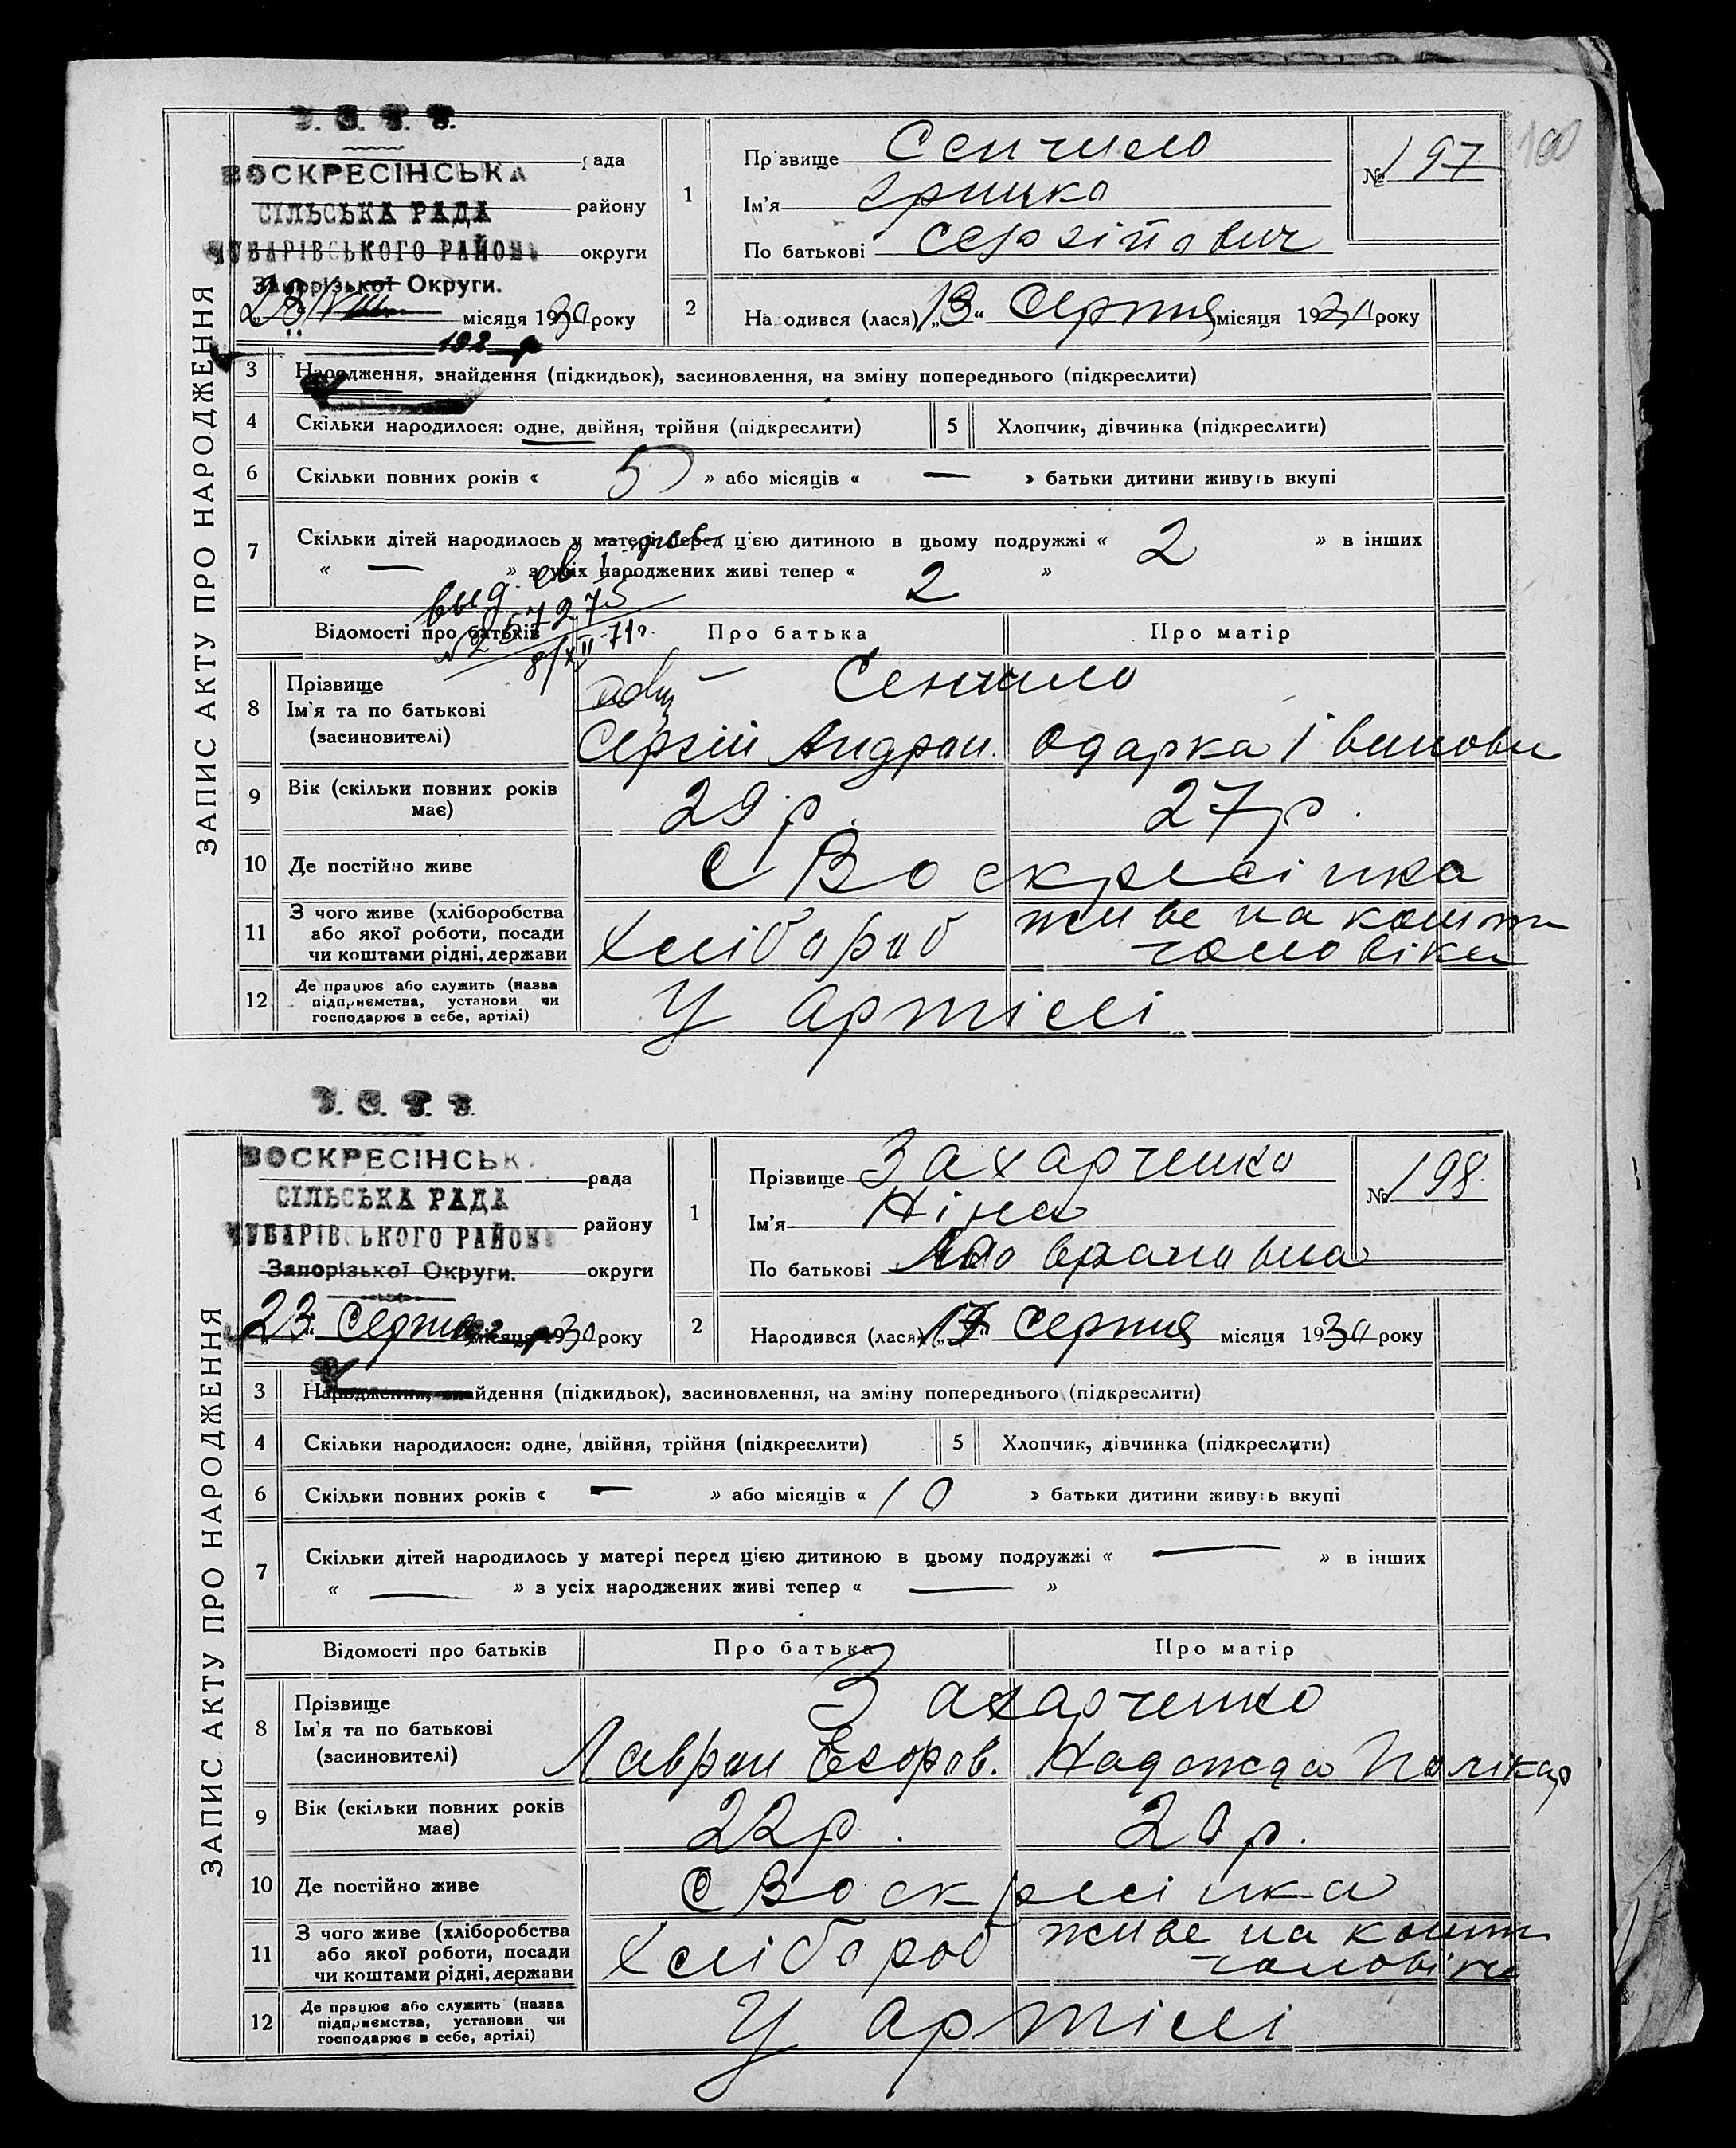 У. С. Р. Р.
ВОСКРЕСІНСЬКА рада
СІЛЬСЬКА РАДА району
ЧУБАРІВСЬКОГО РАЙОНУ округи
Запорізької Округи.
23 VIII місяця 1930 року
192 р
ЗАПИС АКТУ ПРО НАРОДЖЕННЯ
1
Прізвище Сенчило
Ім'я Грицко
По батькові Сергійович
№ 197
160
2 Народився (лася) „13“ Серпня місяця 1930 року
3 Народження, знайдення (підкидьок), засиновлення, на зміну попереднього (підкреслити)
4 Скільки народилося: одне, двійня, трійня (підкреслити) 5 Хлопчик, дівчинка (підкреслити)
6 Скільки повних років « 5 » або місяців « — » батьки дитини живуть вкупі
7 Скільки дітей народилось у матері перед цією дитиною в цьому подружжі « 2 » в інших
« — » з усіх народжених живі тепер « 2 »
выд. св.
8/XII-71г.
Відомості про батьків Про батька Про матір
8 Прізвище
Ім'я та по батькові
(засиновителі)
Сенчило
Сергій Андрон. Одарка Івановн
9 Вік (скільки повних років має) 29 р. 27 р.
10 Де постійно живе С Воскресінка
11 З чого живе (хліборобства
або якої роботи, посади
чи коштами рідні, держави
Хлібороб живе на кошти
чоловіка
12 Де працює або служить (назва
підприємства, установи чи
господарює в себе, артілі)
У артілі
У. С. Р. Р.
ВОСКРЕСІНСЬК рада
СІЛЬСЬКА РАДА району
ЧУБАРІВСЬКОГО РАЙОНУ
Запорізької Округи. округи
23 Серпня місяця 1930 року
ЗАПИС АКТУ ПРО НАРОДЖЕННЯ
1
Прізвище Захарченко
Ім'я Ніна
По батькові Лавранов\u043dа
№ 198
2 Народився (лася) „17“ Серпня місяця 1930 року
3 Народження, знайдення (підкидьок), засиновлення, на зміну попереднього (підкреслити)
4 Скільки народилося: одне, двійня, трійня (підкреслити) 5 Хлопчик, дівчинка (підкреслити)
6 Скільки повних років « — » або місяців « 10 » батьки дитини живуть вкупі
7 Скільки дітей народилось у матері перед цією дитиною в цьому подружжі « — » в інших
« — » з усіх народжених живі тепер « — »
Відомості про батьків Про батька Про матір
8 Прізвище
Ім'я та по батькові
(засиновителі)
Захарченко
Лавран Егоров. Надежда Полікар
9 Вік (скільки повних років має) 22 р. 20 р.
10 Де постійно живе С Воскресінка
11 З чого живе (хліборобства
або якої роботи, посади
чи коштами рідні, держави
Хлібороб живе на кошт
чоловіка
12 Де працює або служить (назва
підприємства, установи чи
господарює в себе, артілі)
У артілі